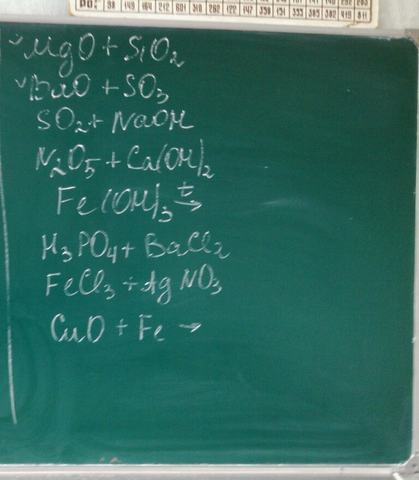 MgO + SiO2
BaO + SO3
SO2 + NaOH
N2O5 + Ca(OH)2
Fe(OH)3 t→
H3PO4 + BaCl2
FeCl3 + AgNO3
CuO + Fe →